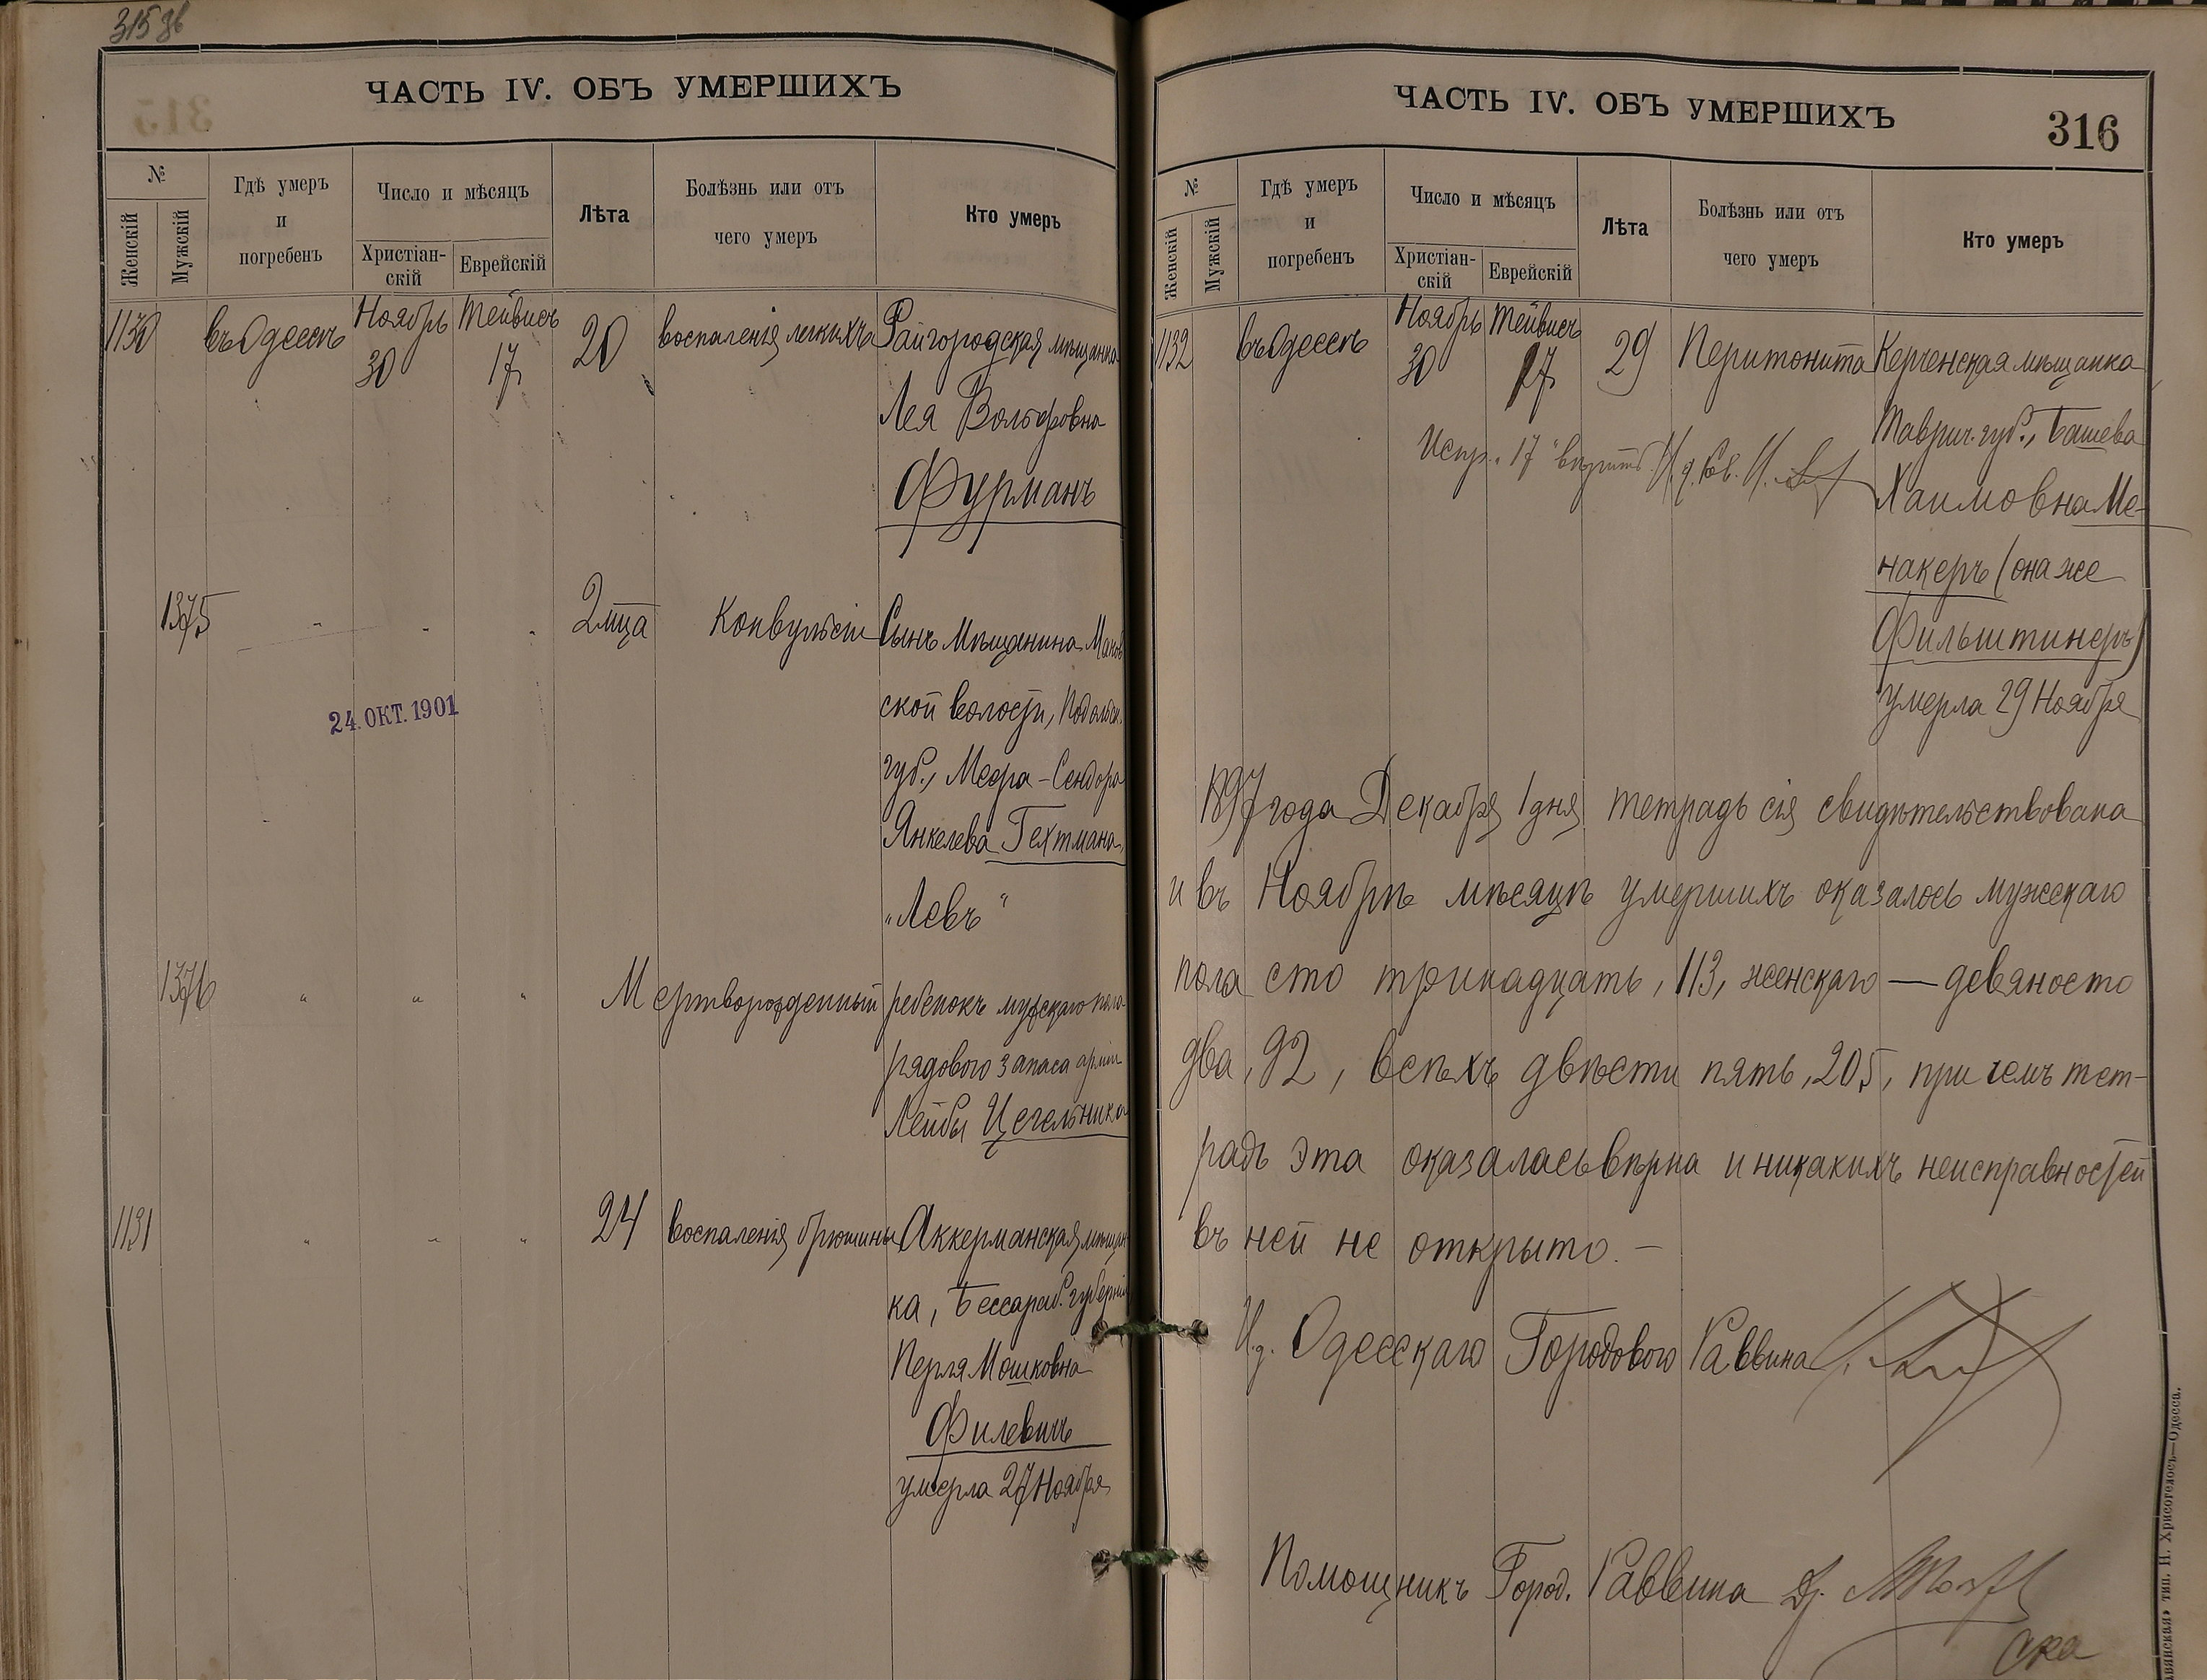 315 об
ЧАСТЬ IV. ОБЪ УМЕРШИХЪ
№
Женскій
Мужскій
Гдѣ умеръ
и
погребенъ
Число и мѣсяцъ
Христіан-
скій
Еврейскій
Лѣта
Болѣзнь или отъ
чего умеръ
Кто умеръ
1130 въ Одессѣ Ноябрь 30 Тейвисъ 17 20 воспаленія легкихъ Райгородская мѣщанка
Лея Вольфовна
Фурманъ
1375 " " " 2 мца Конвульсіи Сынъ мѣщанина
ской волости, Подольск.
губ., Меера-Сендора
Янкелева Гехтмана,
„Левъ“
24. ОКТ. 1901
1376 " " " Мертворожденный ребенокъ мужскаго пола
рядового запаса арміи
Лейбы Цегельника
1131 " " " 24 воспаленія брюшины Аккерманская мѣщан
ка, Бессараб. губерніи
Перля Мошковна
Филевичъ
умерла 27 Ноября
ЧАСТЬ IV. ОБЪ УМЕРШИХЪ
316
№
Женскій
Мужскій
Гдѣ умеръ
и
погребенъ
Число и мѣсяцъ
Христіан-
скій
Еврейскій
Лѣта
Болѣзнь или отъ
чего умеръ
Кто умеръ
1132 въ Одессѣ Ноябрь 30 Тейвисъ 17 29 Перитонита Керченская мѣщанка
Таврич. губ., Башева
Испр. „17“ вѣрить.
Хаимовна Ме-
накеръ (она же
Фильштинеръ)
умерла 29 Ноября
1897 года Декабря 1 дня тетрадь сія свидѣтельствована
и въ Ноябрѣ мѣсяцѣ умершихъ оказалось мужскаго
пола сто тринадцать, 113, женскаго — девяносто
два, 92, всѣхъ двѣсти пять, 205, при чемъ тет-
радь эта оказалась вѣрна и никакихъ неисправностей
въ ней не открыто. —
И.д. Одесскаго Городового Раввина
Помощникъ Город. Раввина
тип. Н. Хрисогелосъ—Одесса.